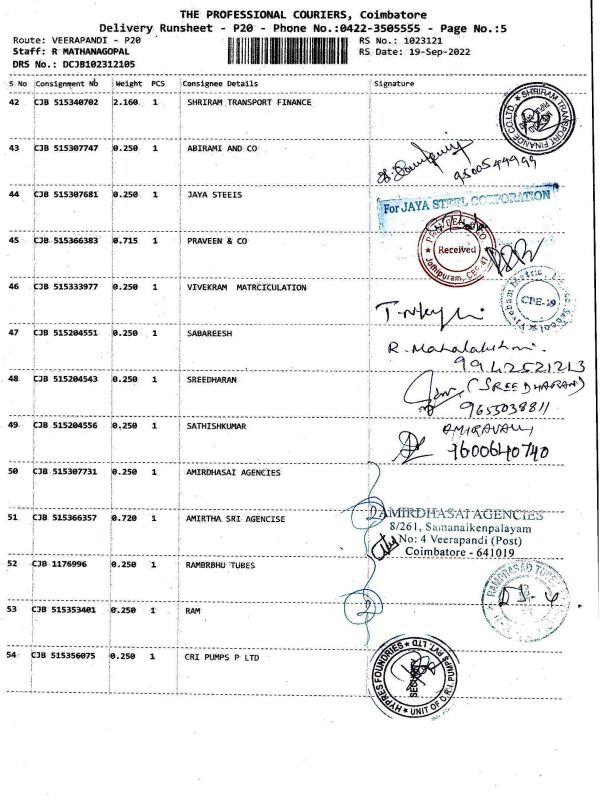 THE PROFESSIONAL COURIERS, Coimbatore
Delivery Runsheet - P20 - Phone No.:0422-3505555 - Page No.:5
Route: VEERAPANDI - P20
RS No.: 1023121
Staff: R MATHANAGOPAL
RS Date: 19-Sep-2022
DRS No.: DCJB102312105
S No Consignment No Weight PCS Consignee Details Signature
42 CJB 515340702 2.160 1 SHRIRAM TRANSPORT FINANCE
SHRIRAM TRANSPORT FINANCE CO LTD.
43 CJB 515307747 0.250 1 ABIRAMI AND CO
9500544999
44 CJB 515307681 0.250 1 JAYA STEEIS
For JAYA STEEL CORPORATION
45 CJB 515366383 0.715 1 PRAVEEN & CO
Received
Jothipuram, CBE-47
46 CJB 515333977 0.250 1 VIVEKRAM MATRCICULATION
CBE-19
47 CJB 515204551 0.250 1 SABAREESH
R. Mahalakshmi.
9942521213
48 CJB 515204543 0.250 1 SREEDHARAN
(SREEDHARAN)
9655038811
49 CJB 515204556 0.250 1 SATHISHKUMAR
9600640740
50 CJB 515307731 0.250 1 AMIRDHASAI AGENCIES
51 CJB 515366357 0.720 1 AMIRTHA SRI AGENCISE
AMIRDHASAI AGENCIES
8/261, Samanaikenpalayam
No: 4 Veerapandi (Post)
Coimbatore - 641019
52 CJB 1176996 0.250 1 RAMBRBHU TUBES
RAMPRASAD TUBE
53 CJB 515353401 0.250 1 RAM
54 CJB 515356075 0.250 1 CRI PUMPS P LTD
HYPRES FOUNDRIES
UNIT OF C.R.I PUMPS PVT LTD
SECURITY